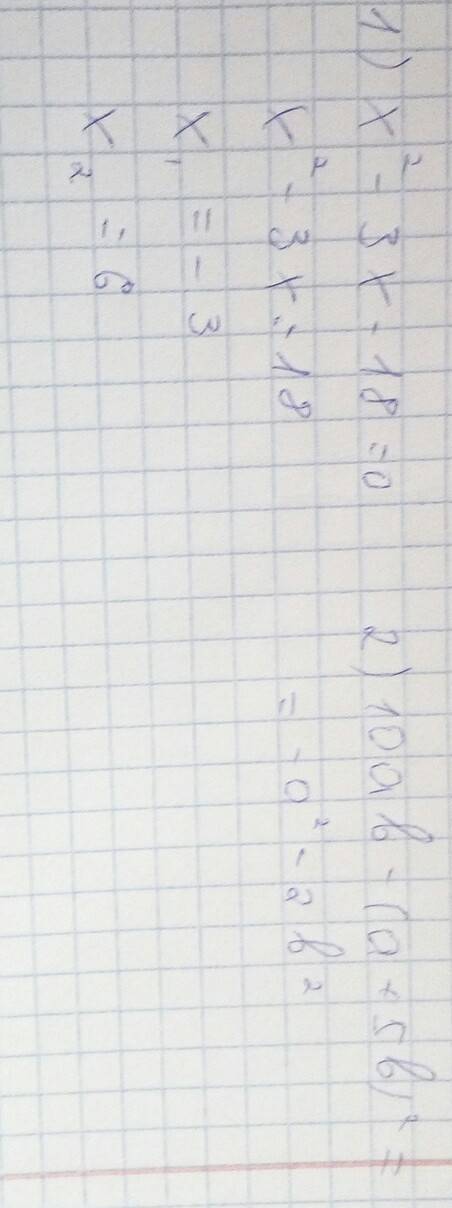 1) x² - 3x - 18 = 0
x² - 3x = 18
x₁ = -3
x₂ = 6
2) 10ab - (a + 5b)² =
= -a² - 2b²